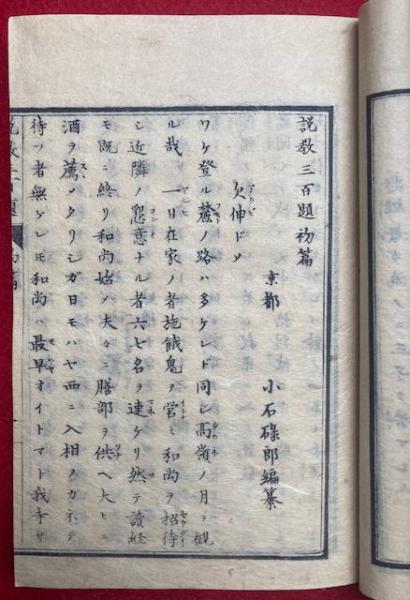 説教三百題初篇
京都 小石碌郎編纂
欠伸ドメ
ワケ登ル麓ノ路ハ多ケレド同シ高嶺ノ月ヲ観
ル哉 一日在家ノ者施餓鬼ヲ営ミ和尚ヲ招待
シ近隣ノ懇恋ナル者六七名ヲ連ケリ然テ讀経
モ既ニ終リ和尚始メ夫々ニ膳部ヲ供ヘ大ヒニ
酒ヲ薦メタリシガ日モハヤ西ニ入相ノカネテ
待ツ者無ケレ𪜈和尚ハ最早オイトマト我寺サ